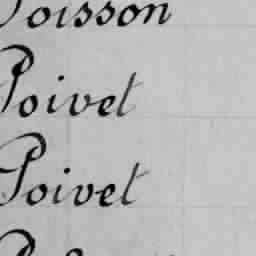 Poisson
Poivet
Poivet